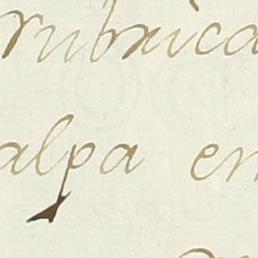 rubrica
alpa en